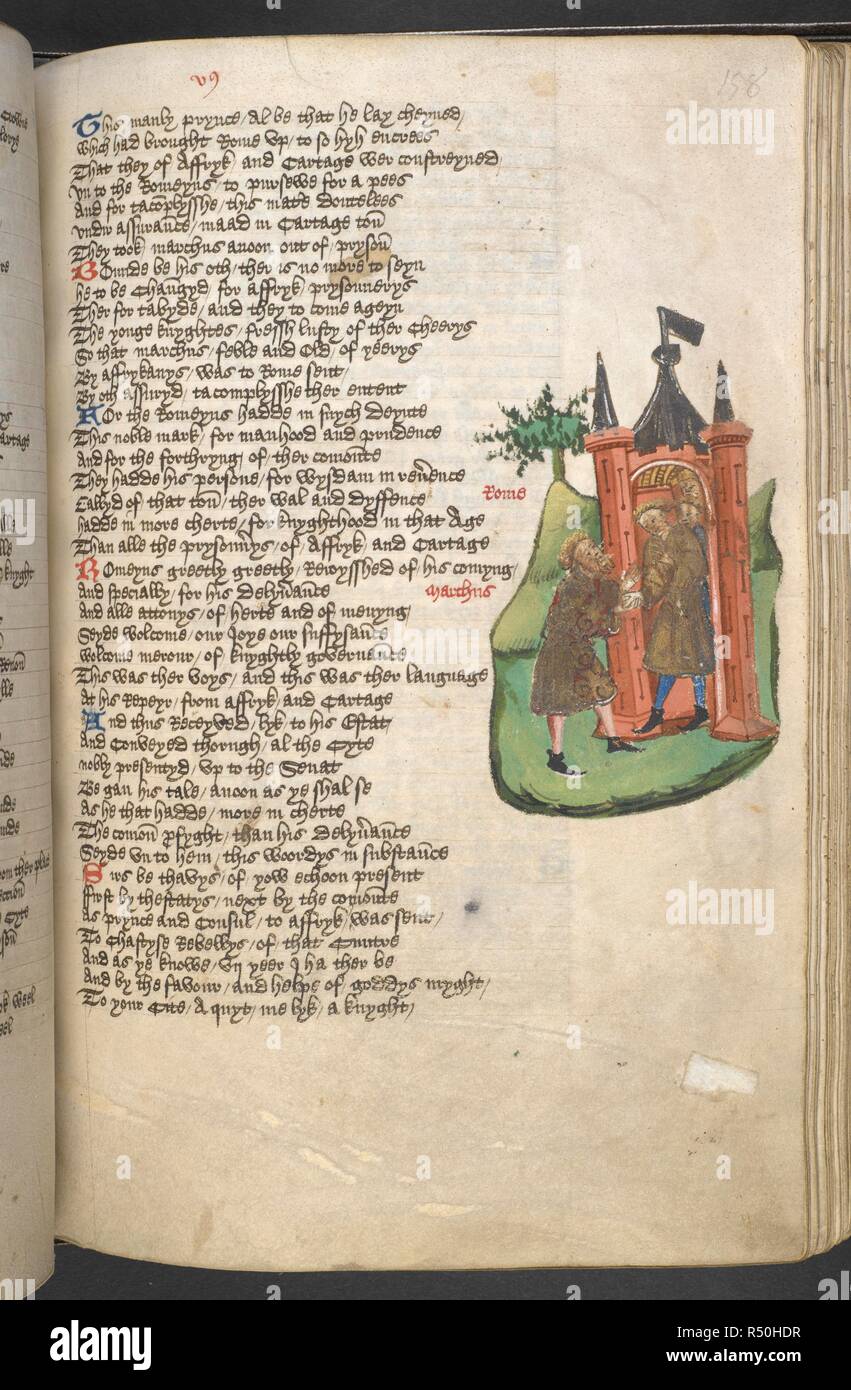 v9
158
This manly prynce / al be that he lay cheyned /
which had brought Rome vp / to so hyh encrees
That they of Affryk / and Cartage wer constreyned /
vn to the Romeyns / to pursewe for a pees
And for tacomplysshe / this mater doutelees
vndir assuraunce / maad in Cartage toun
They took / marchus anoon out of / prysoun
Bounde be his oth / ther is no more to seyn
he to be Chaungyd / for affryk / prysonnerys
Ther for tabyde / and they to come ageyn
The yonge knyghtes / fressh lusty of ther Cheerys
So that marchus / feble and Old / of yeerys
By affrykanys / was to Rome sent /
By oth assuryd / tacomplysshe ther entent
For the Romeyns hadde in suych deynte
This noble mark / for manhood and prudence
And for the forthryng / of / ther comounte
They hadde his persone / for wysdam in reverence
Callyd of that toun / ther wal and dyffence
hadde in more cherte / for knyghthood in that Age
Than alle the prysonerys / of / Affryk / and Cartage
Romeyns greetly greetly / Reioysshed of his comyng /
And specially / for his delyueraunce
And alle attonys / of herte and of menyng /
Seyde welcome / our Joye our suffysaunce
welcome merour / of knyghtly governaunce
This was ther voys / and this was ther language
At his Repeyr / from affryk / and Cartage
And thus Receyved / lyk / to his Estat /
And Conveyed thorugh / al the Cyte
nobly presentyd / vp to the Senat
Be gan his tale / anoon as ye shal se
As he that hadde / more in cherte
The comoun profyght / than his delyueraunce
Seyde vn to hem / this woordys in substaunce
Sirs be thavys / of / yow echoon present
ffirst by thestatys / next by the comounte
As prynce and Consul / to affryk / was sent /
To Chastyse Rebellys / of that Cuntre
And as ye knowe / vij yeer I ha ther be
And by the favour / and helpe of goddys myght /
To your Cite / A quyt / me lyk / a knyght /
Rome
Marchus
alamy
Image ID: R50HDR
www.alamy.com